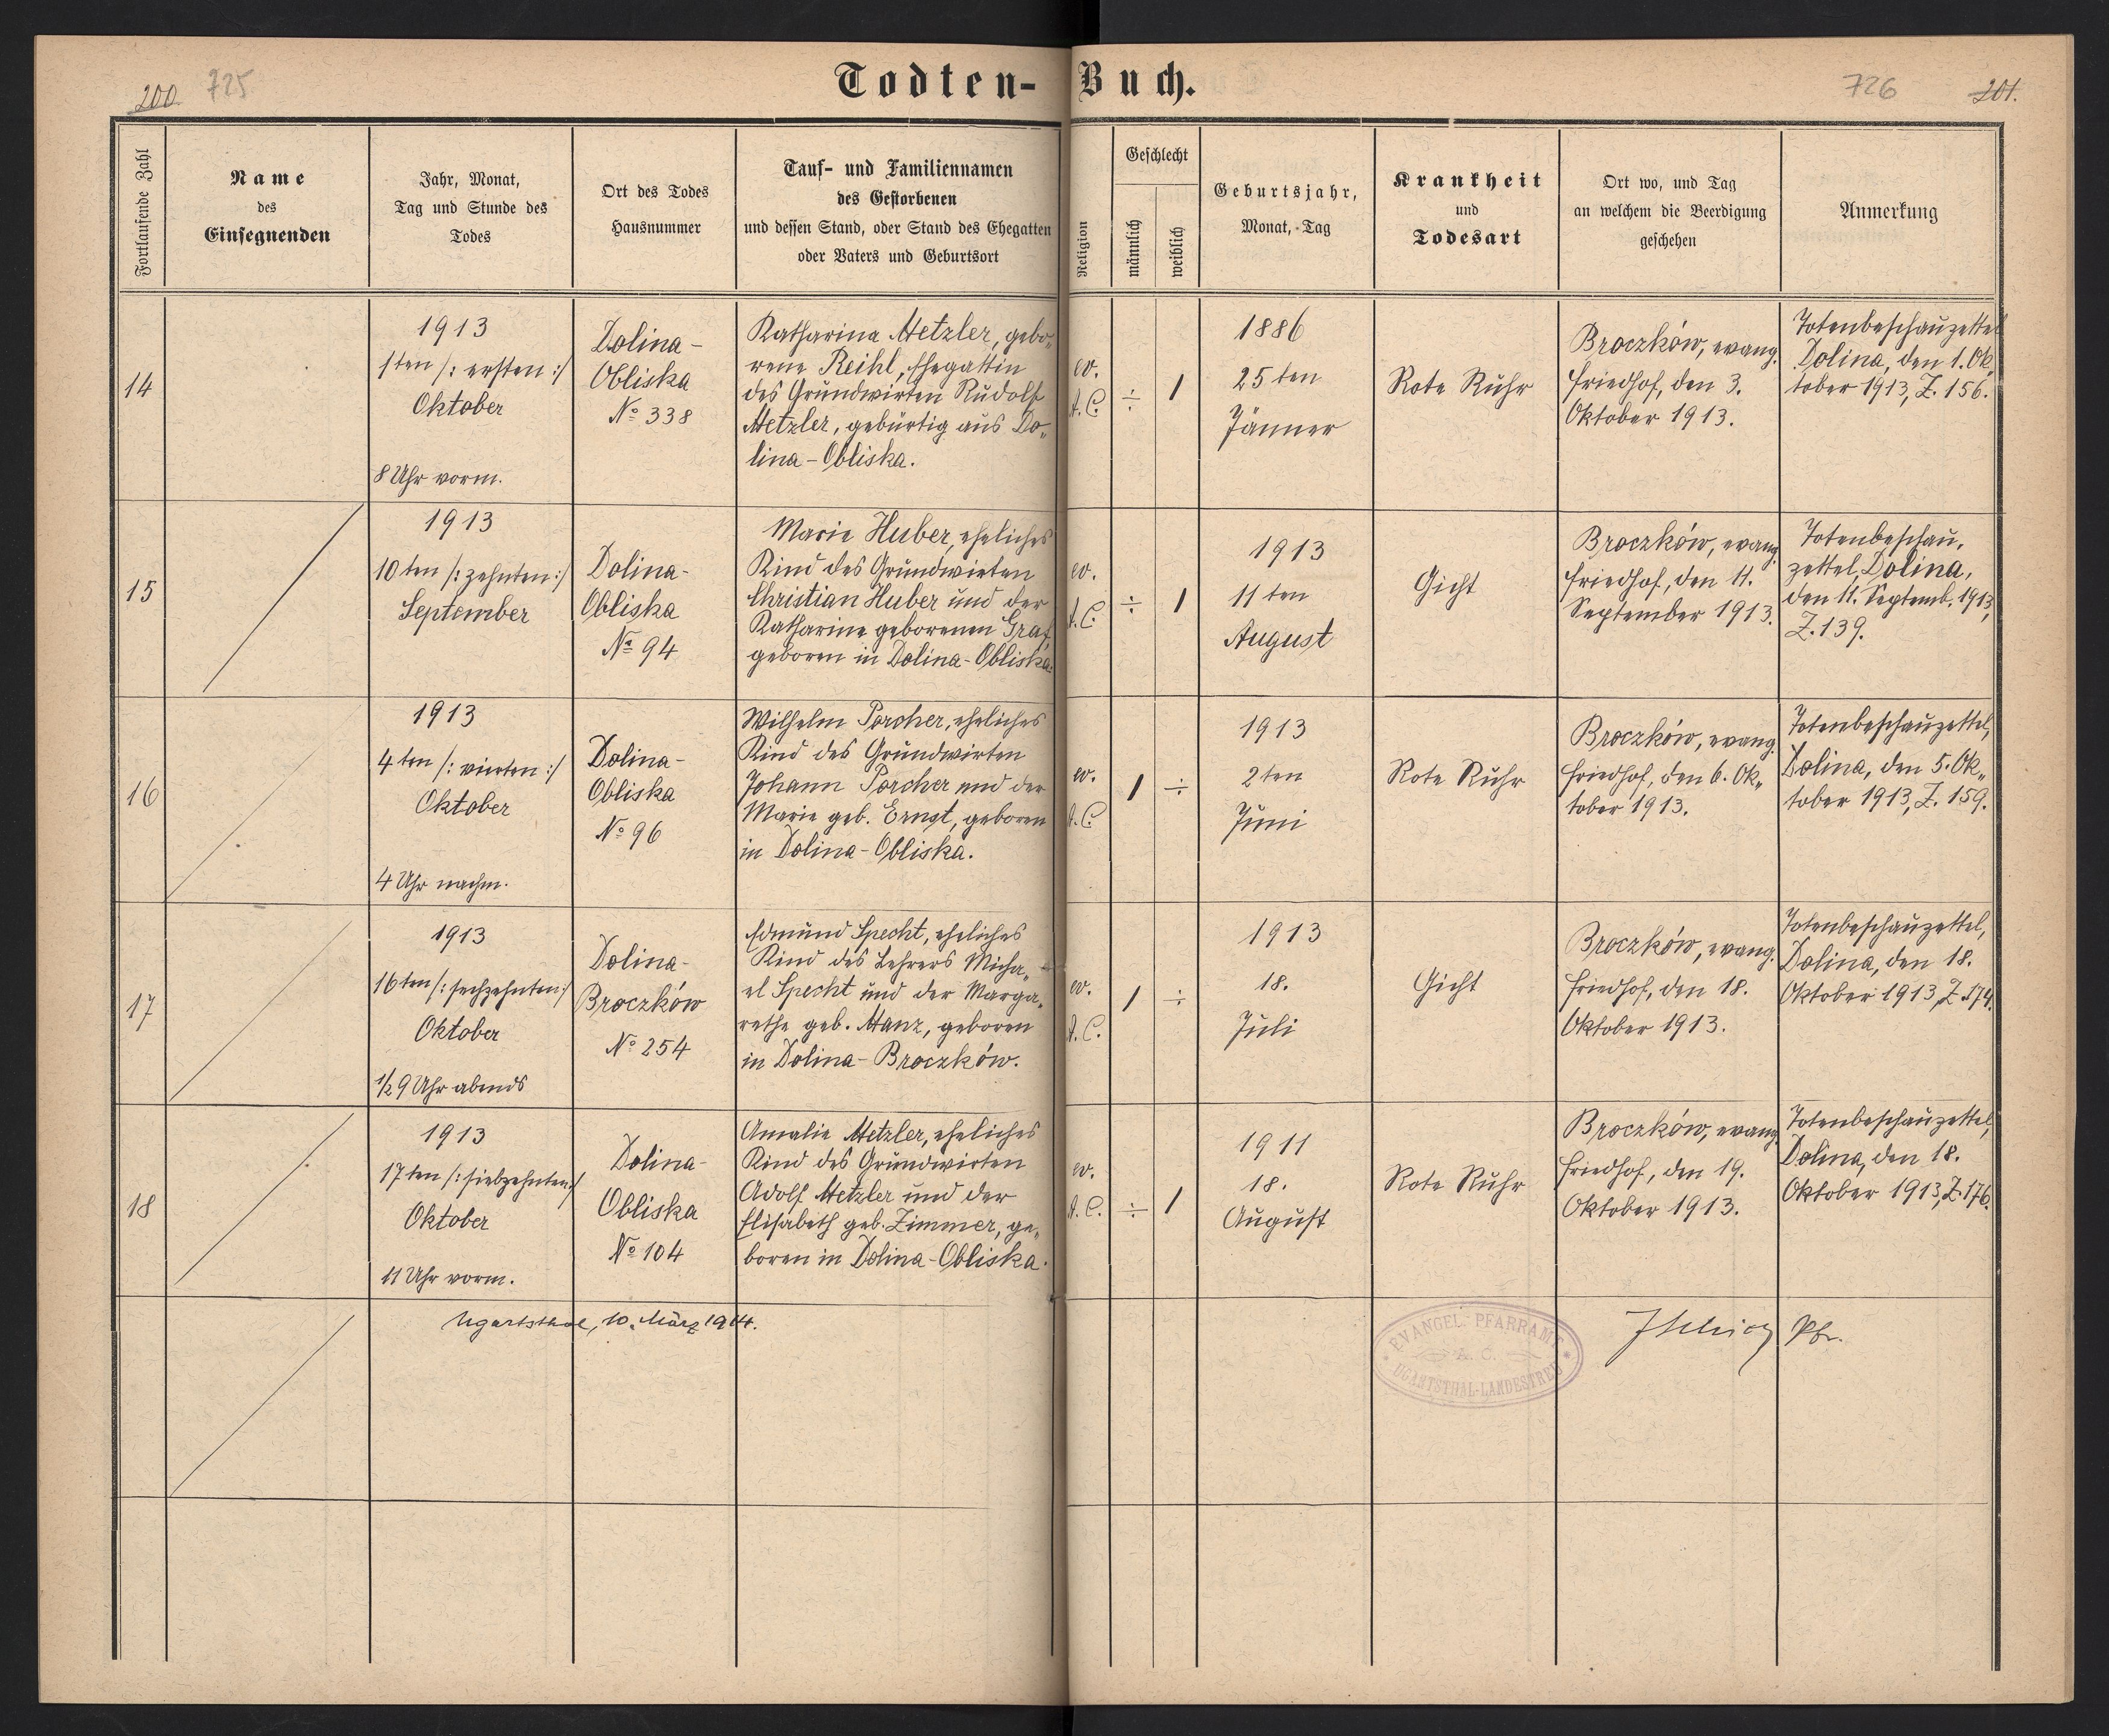 200. 725
Todten-Buch.
726 201.
Fortlaufende Zahl
Name
des
Einsegnenden
Jahr, Monat,
Tag und Stunde des
Todes
Ort des Todes
Hausnummer
Tauf- und Familiennamen
des Gestorbenen
und dessen Stand, oder Stand des Ehegatten
oder Vaters und Geburtsort
Religion
Geschlecht
männlich
weiblich
Geburtsjahr,
Monat, Tag
Krankheit
und
Todesart
Ort wo, und Tag
an welchem die Beerdigung
geschehen
Anmerkung
14
1913
1ten /: ersten :/
Oktober
8 Uhr vorm.
Dolina-
Obliska
No 338
Katharina Metzler, gebo„
rene Reihl, Ehegattin
des Grundwirten Rudolf
Metzler, gebürtig aus Do„
lina-Obliska.
ev.
A.C.
÷
1
1886
25ten
Jänner
Rote Ruhr
Broczków, evang.
Friedhof, den 3.
Oktober 1913.
Totenbeschauzettel
Dolina, den 1. Ok„
tober 1913, Z. 156.
15
1913
10ten /: zehnten :/
September
Dolina-
Obliska
No 94
Marie Huber, eheliches
Kind des Grundwirten
Christian Huber und der
Katharine geborenen Graf
geboren in Dolina-Obliska.
ev.
A.C.
÷
1
1913
11ten
August
Gicht
Broczków, evang.
Friedhof, den 11.
September 1913.
Totenbeschau„
zettel, Dolina,
den 11. Septemb. 1913,
Z. 139.
16
1913
4ten /: vierten :/
Oktober
4 Uhr nachm.
Dolina-
Obliska
No 96
Wilhelm Porcher, eheliches
Kind des Grundwirten
Johann Porcher und der
Marie geb. Ernst, geboren
in Dolina-Obliska.
ev.
A.C.
1
÷
1913
2ten
Juni
Rote Ruhr
Broczków, evang.
Friedhof, den 6. Ok„
tober 1913.
Totenbeschauzettel,
Dolina, den 5. Ok„
tober 1913, Z. 159.
17
1913
16ten /: sechzehnten :/
Oktober
1/2 9 Uhr abends
Dolina-
Broczków
No 254
Edmund Specht, eheliches
Kind des Lehrers Micha„
el Specht und der Marga„
rethe geb. Manz, geboren
in Dolina-Broczków.
ev.
A.C.
1
÷
1913
18.
Juli
Gicht
Broczków, evang.
Friedhof, den 18.
Oktober 1913.
Totenbeschauzettel,
Dolina, den 18.
Oktober 1913, Z. 174.
18
1913
17ten /: siebzehnten :/
Oktober
11 Uhr vorm.
Dolina-
Obliska
No 104
Amalie Metzler, eheliches
Kind des Grundwirten
Adolf Metzler und der
Elisabeth geb. Zimmer, ge„
boren in Dolina-Obliska.
ev.
A.C.
÷
1
1911
18.
August
Rote Ruhr
Broczków, evang.
Friedhof, den 19.
Oktober 1913.
Totenbeschauzettel,
Dolina, den 18.
Oktober 1913, Z. 176.
Ugartsthal, 10. März 1914.
EVANGEL. PFARRAMT
A. C.
UGARTSTHAL-LANDESTREU
Pfr.